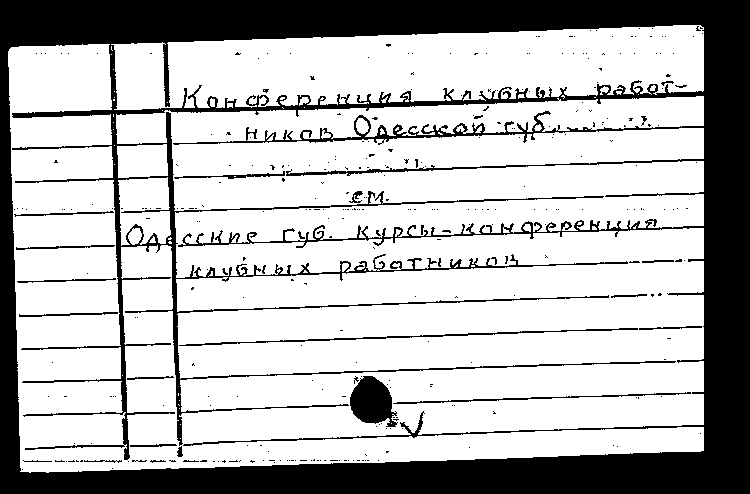 Конференция клубных работ-
ников Одесской губ.
см.
Одесские губ. курсы-конференция
клубных работников